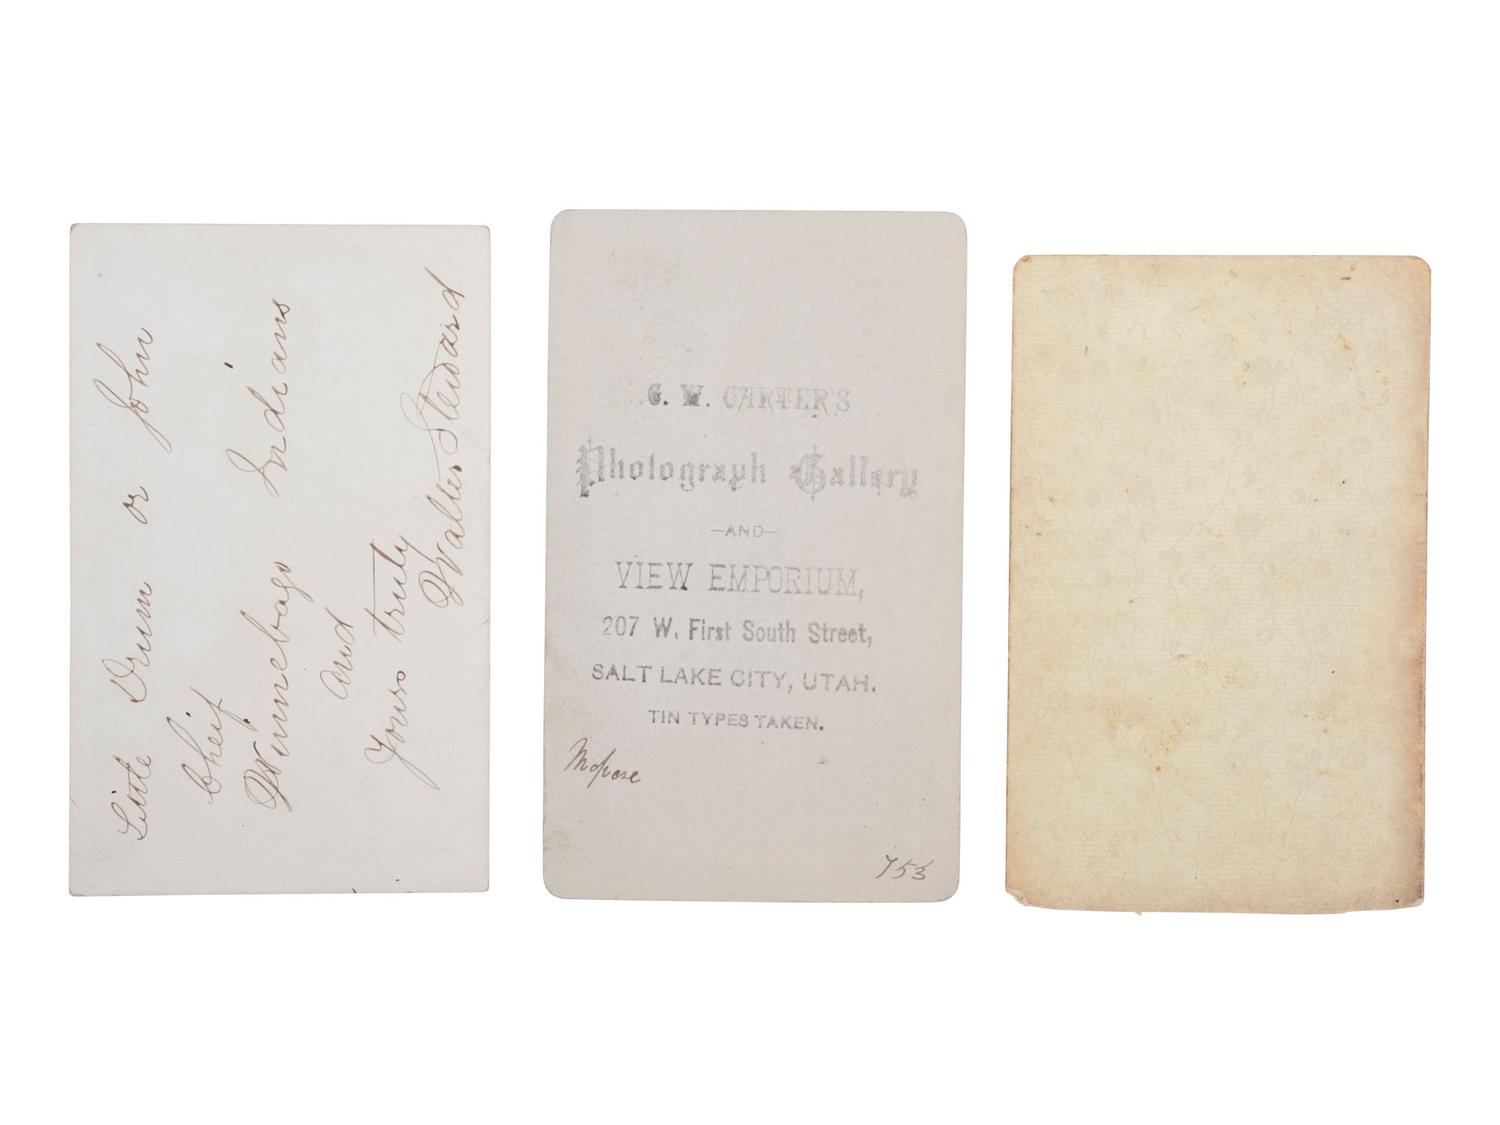 Little Drum or John
Cheif
Winnebago Indians
and
Yours truly
Walter Steward
C. W. CARTER'S
Photograph Gallery
—AND—
VIEW EMPORIUM,
207 W. First South Street,
SALT LAKE CITY, UTAH.
TIN TYPES TAKEN.
Mopose
753